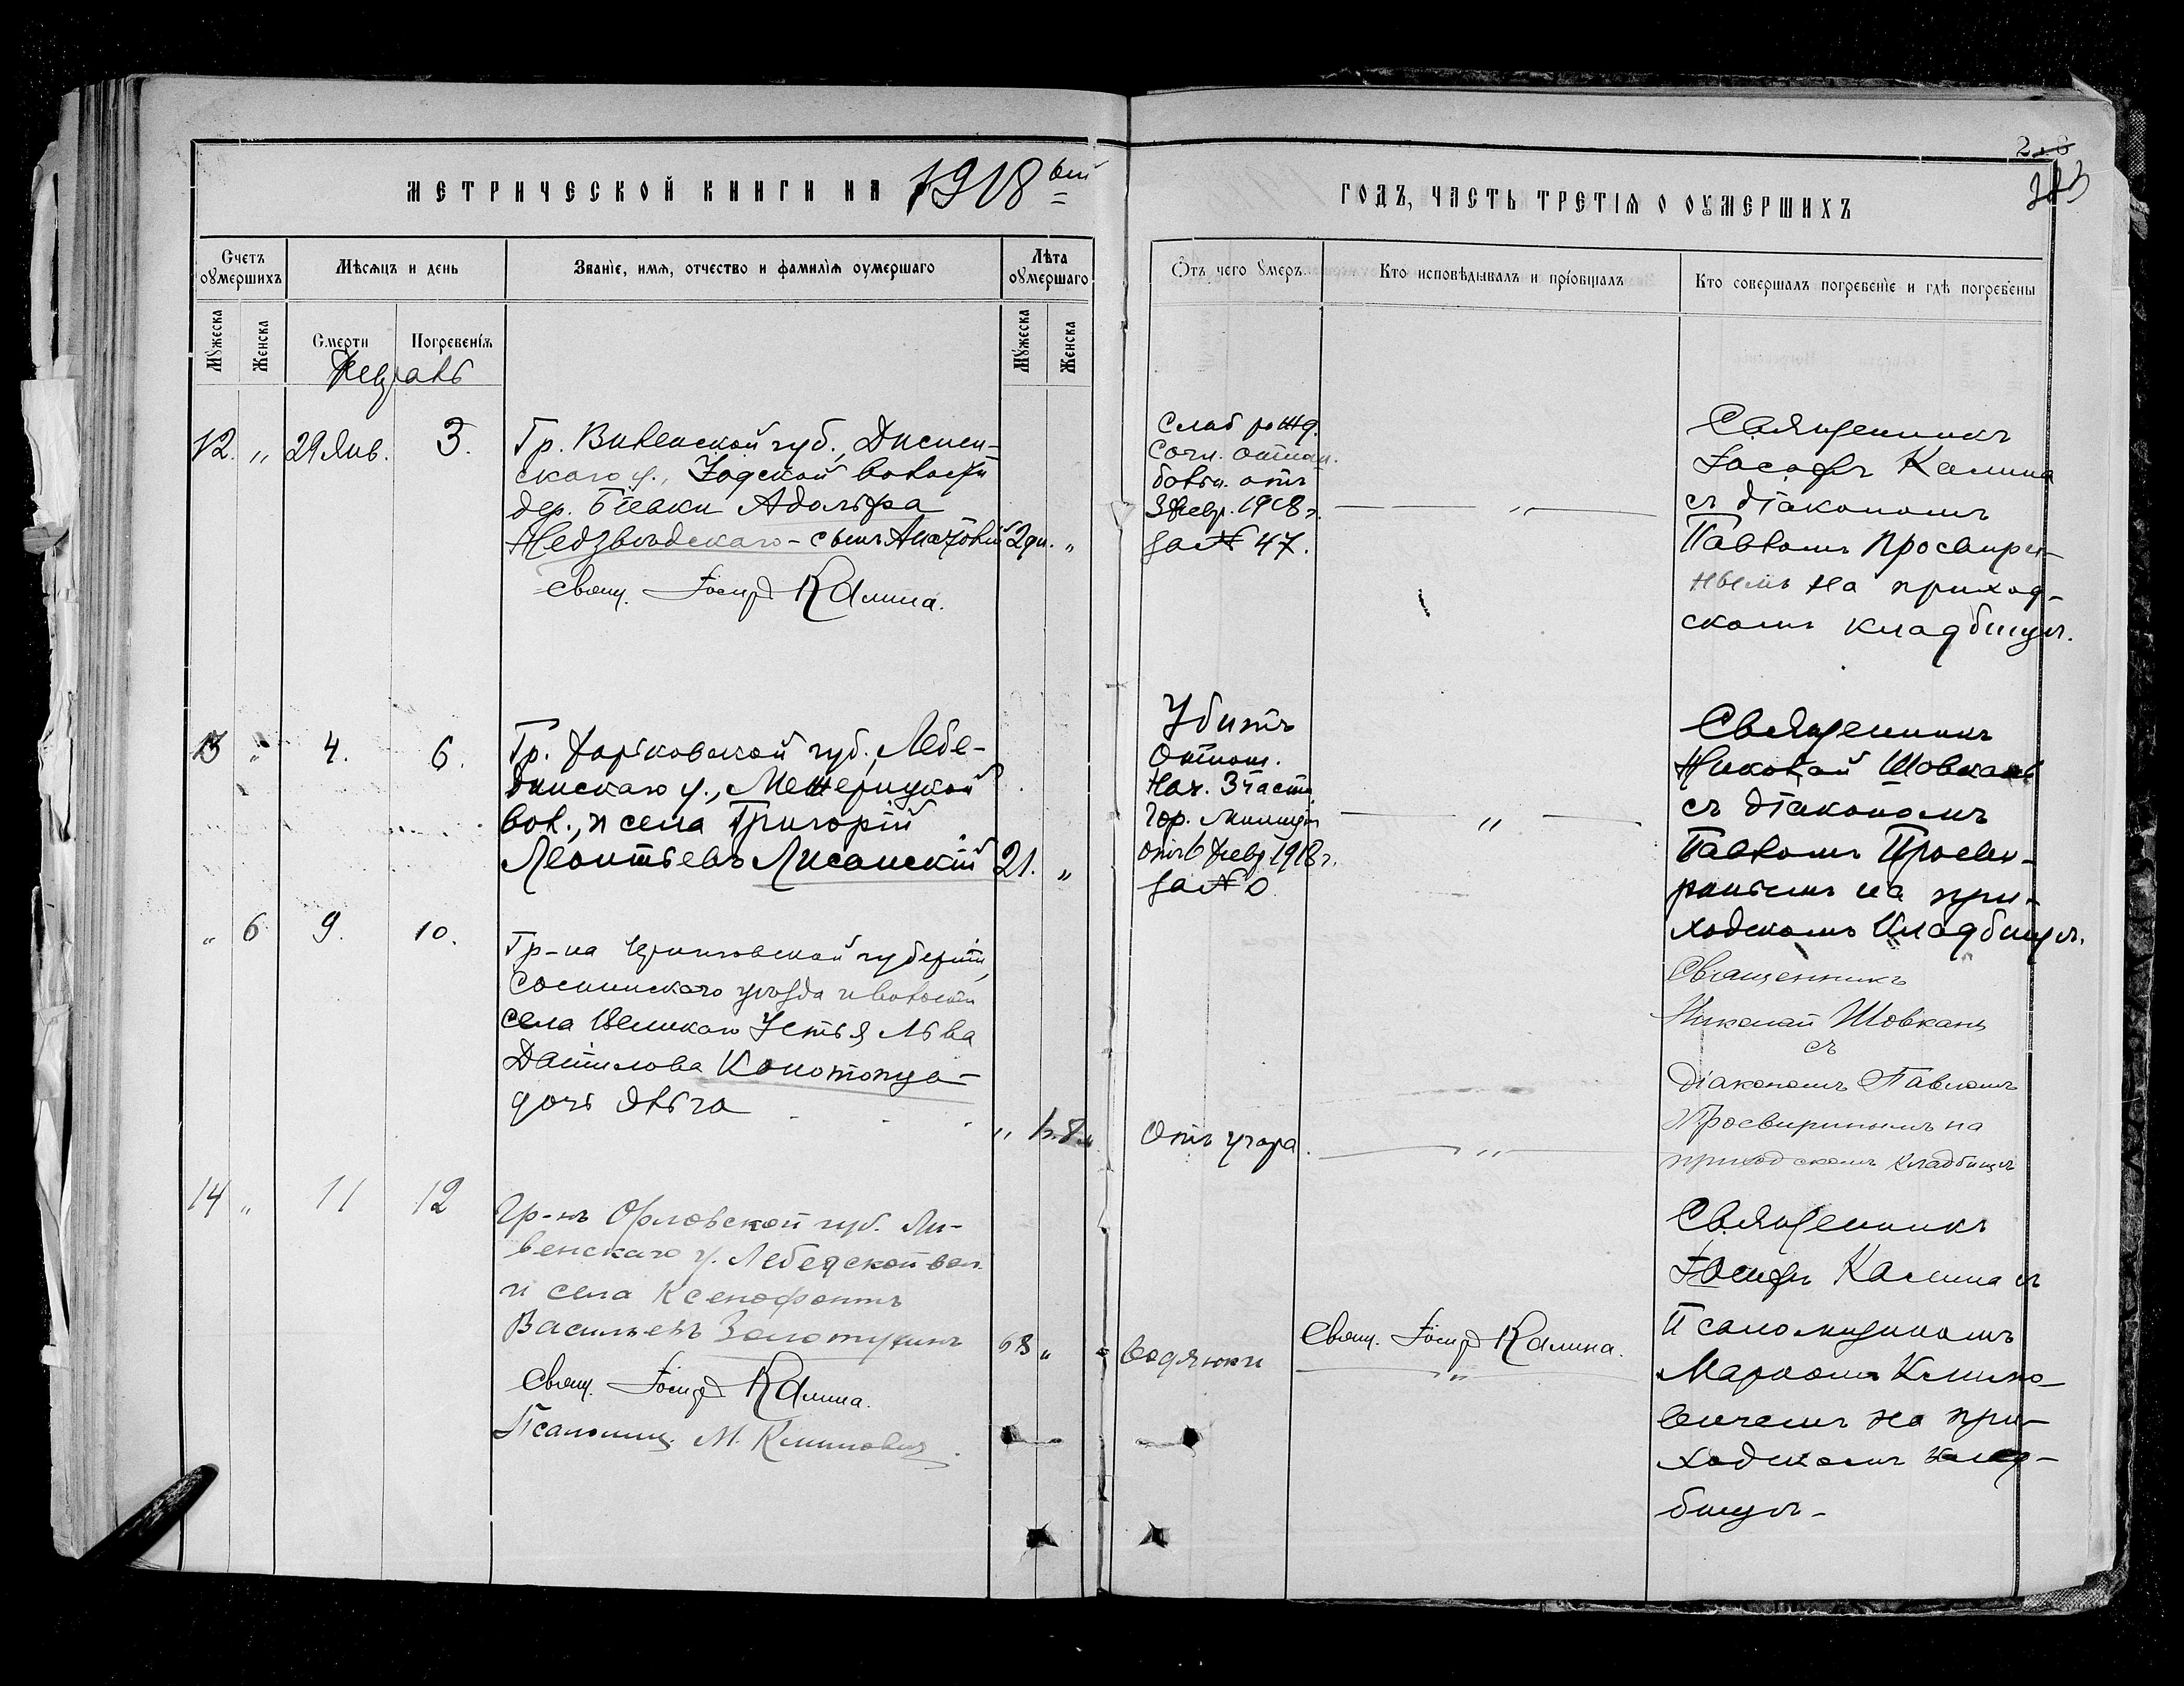 МЕТРИЧЕСКОЙ КНИГИ НА 1918 вый
ГОДЪ, ЧАСТЬ ТРЕТІЯ О ОУМЕРШИХЪ
Счетъ оумершихъ
Мѣсяцъ и день
Званіе, имя, отчество и фамилія оумершаго
Лѣта оумершаго
Мужеска
Женска
Смерти
Погребенія
Мужеска
Женска
Отъ чего умеръ
Кто исповѣдывалъ и пріобщалъ
Кто совершалъ погребеніе и гдѣ погребены
Февраль
12. " 29 Янв. 3.
Гр. Виленской губ., Диснен-
скаго у., волости
дер. Адольфа
Недзвѣдскаго - сынъ Анатолій 2 дн. "
Свящ. Іосиф Калина.
Слаб. рожд.
болън. отъ
3 Февр. 1918 г.
за № 47.
"
Священникъ
Іосифъ Калина
съ діакономъ
Павломъ Просвири-
нымъ на приход-
скомъ кладбищѣ.
13 " 4. 6.
Гр. Харьковской губ., Лебе-
динскаго у., Межерицкой
вол., и села Григорій
Леонтьевъ Лисанскій 21. "
Убитъ
Отнош.
Нач. 3 части
Гор. Милиціи
отъ 6 Февр. 1918 г.
за № 0
"
Священникъ
Николай Шовкань
съ діакономъ
Павломъ Просви-
ринымъ на при-
ходскомъ кладбищѣ.
" 6 9. 10.
Гр-на Черниговской губерніи,
Сосницкаго уѣзда и волости
села Великаго Устья Льва
Даниилова Конотопца-
дочь Ольга
" 1 г. 8 м.
Отъ угара.
"
Священникъ
Николай Шовкань
съ
діакономъ Павломъ
Просвиринымъ на
приходскомъ кладбищѣ
14 " 11 12
Гр-нъ Орловской губ. Ли-
венскаго у. Лебедской вол.
и села Ксенофонтъ
Васильевъ Золотухинъ 68 "
Свящ. Іосиф Калина.
Псаломщ. М. Климович.
водянки
Свящ. Іосиф Калина.
"
Священникъ
Іосифъ Калина съ
Псаломщикомъ
Маркомъ Климо-
вичемъ на при-
ходскомъ клад-
бищѣ-